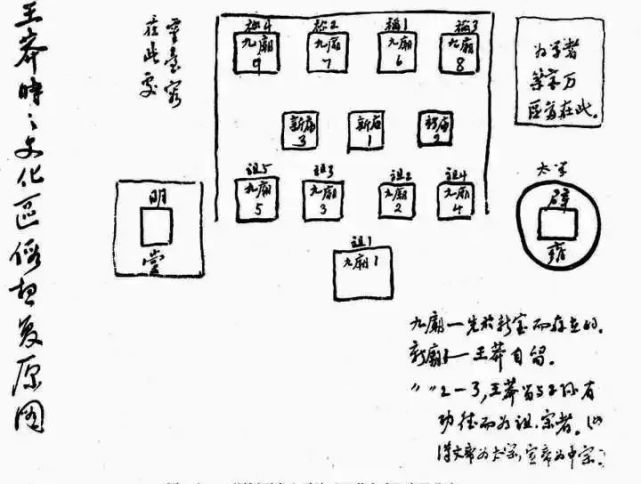 王莽時之文化區假想复原图
靈臺當
在此處
祢4 祢2 祢1 祢3
九廟9
九廟7
九廟6
九廟8
为学者
築舍万
區當在此。
新廟3
新廟1
新廟2
祖5 祖3 祖2 祖4
九廟5
九廟3
九廟2
九廟4
太学
明堂
辟雍
祖1
九廟1
九廟—先於新室而存在的。
新廟1—王莽自留。
〃〃2—3,王莽留与子孙有
功德而为祖、宗者。(如
漢文帝为太宗,宣帝为中宗)